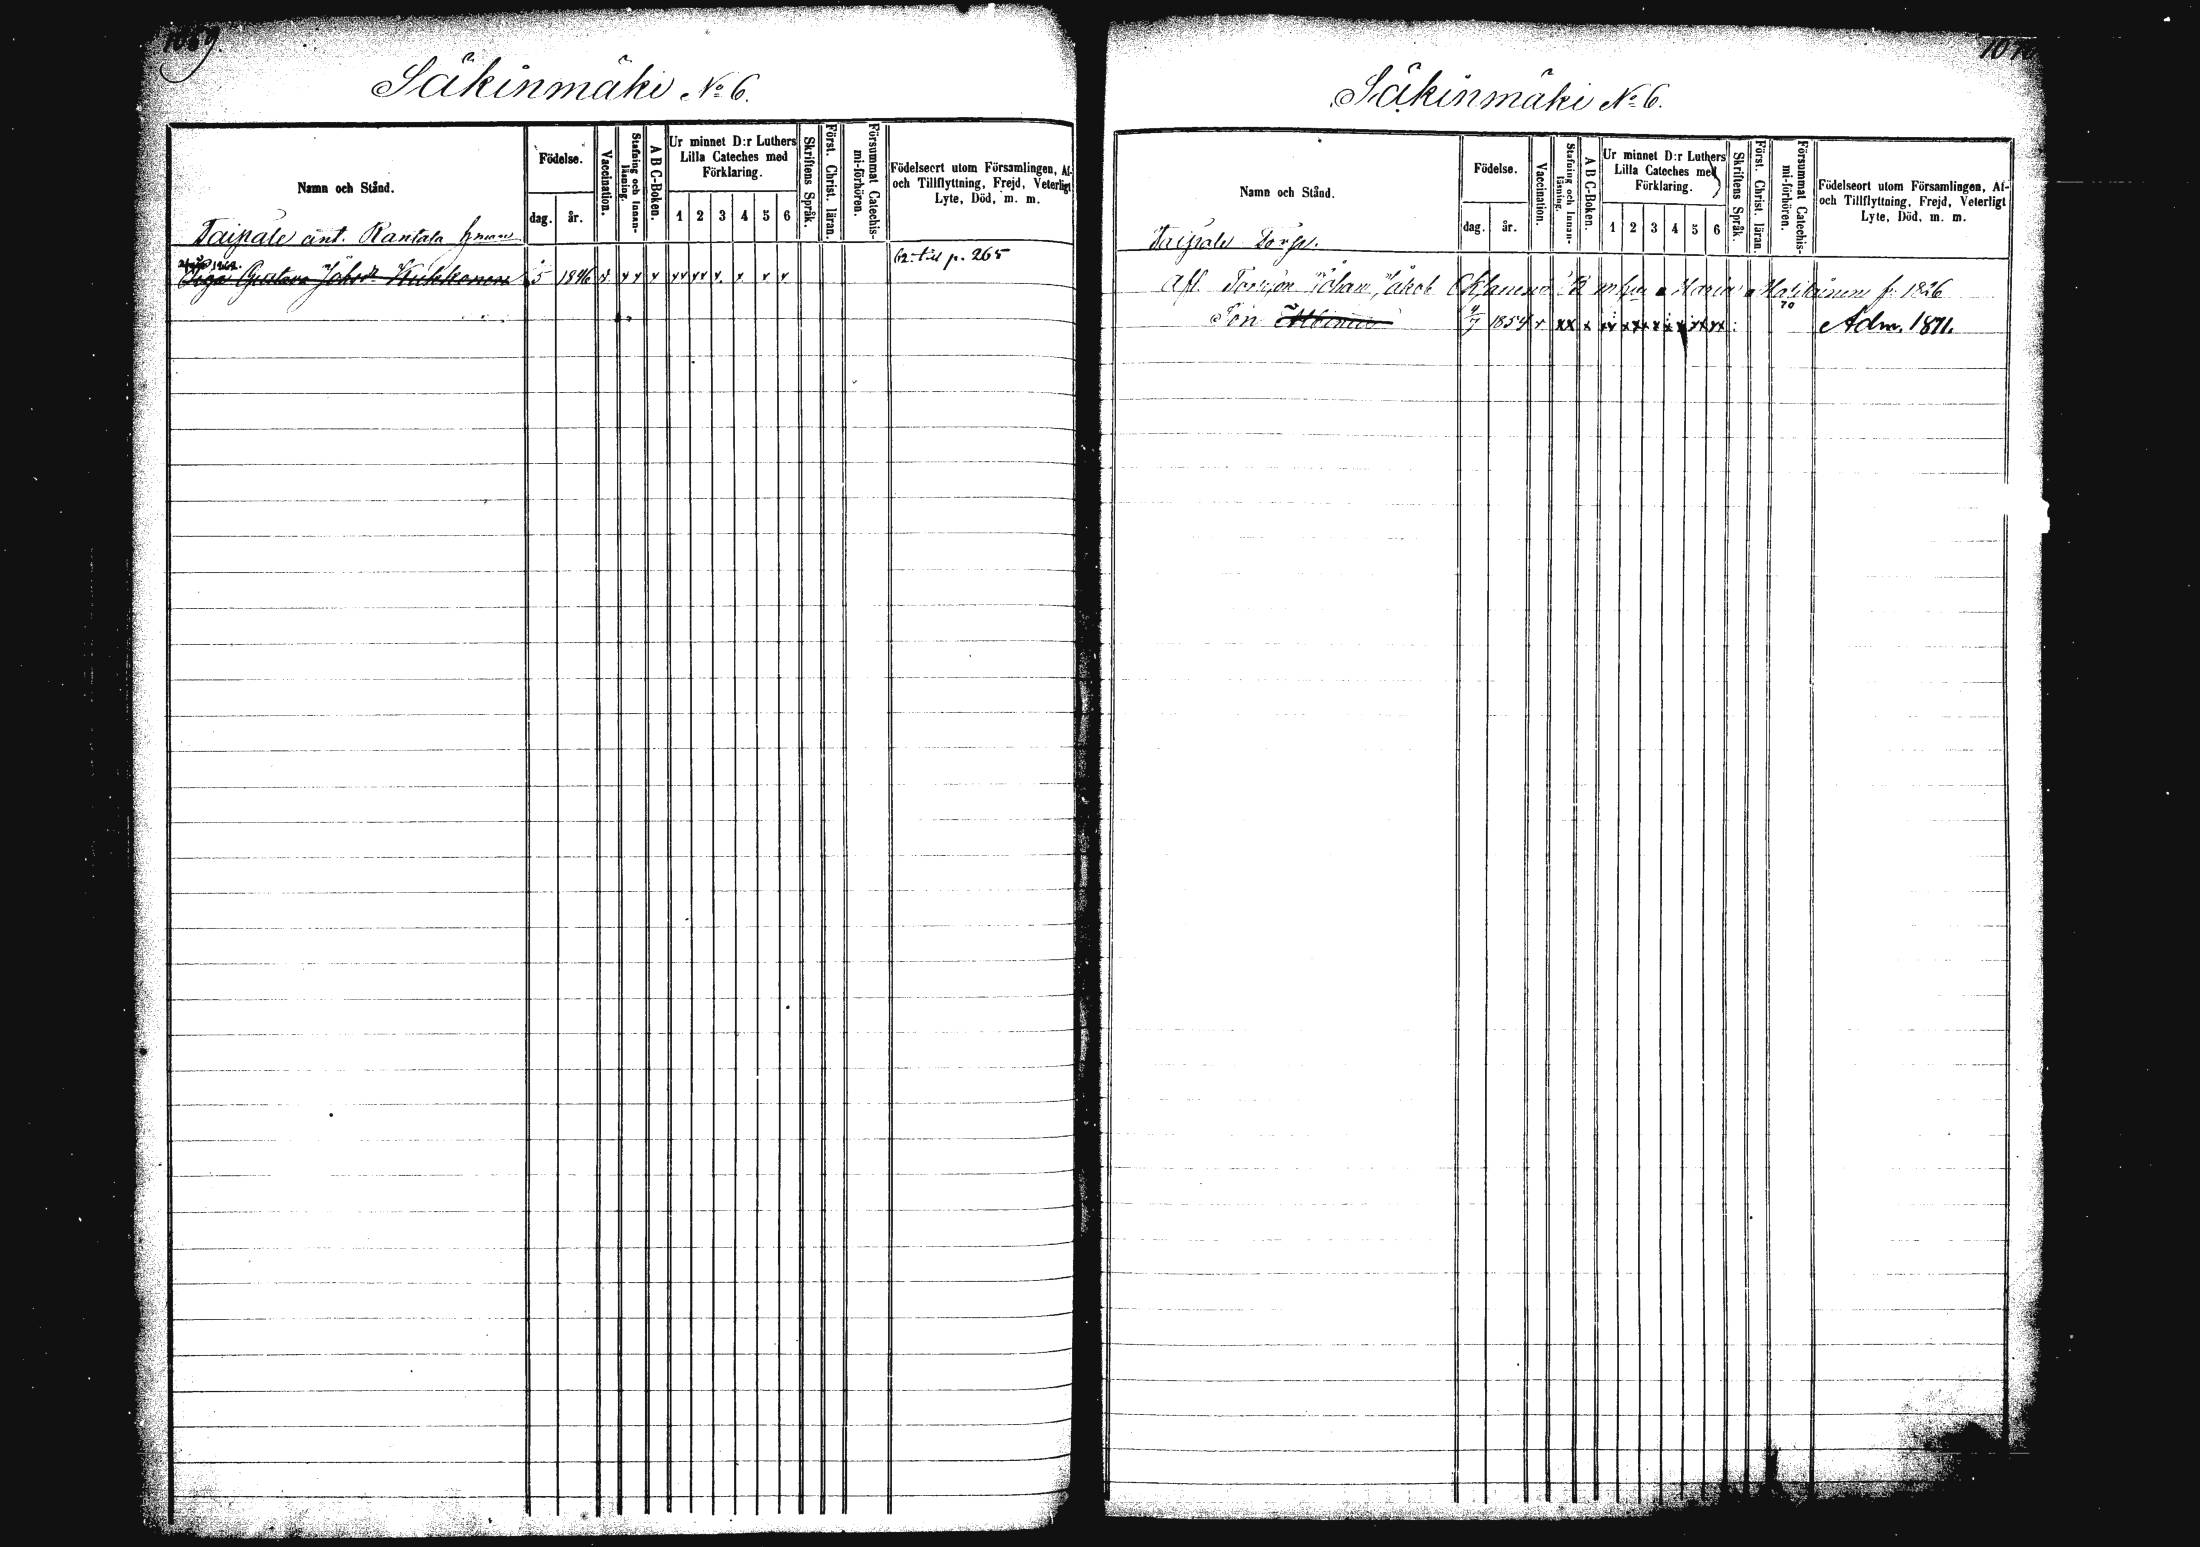 Säkinmäki № 6.
Namn och Stånd.
Födelse.
dag.
år.
Vaccination.
Stafning och Innan-läsning.
A B C-Boken.
Ur minnet D:r Luthers
Lilla Cateches med
Förklaring.
1 2 3 4 5 6
Skriftens Språk.
Först. Christ. läran.
Försummat Catechis-
mi-förhören.
Födelseort utom Församlingen, Af-
och Tillflyttning, Frejd, Veterligt
Lyte, Död, m. m.
Taipale Rantala
Gustava Kukkonen 5 1846
62 till p. 265
Säkinmäki № 6.
Namn och Stånd.
Födelse.
dag.
år.
Vaccination.
Stafning och Innan-
läsning.
A B C-Boken.
Ur minnet D:r Luthers
Lilla Cateches med
Förklaring.
1 2 3 4 5 6
Skriftens Språk.
Först. Christ. läran.
Försummat Catechis-
mi-förhören.
Födelseort utom Församlingen, Af-
och Tillflyttning, Frejd, Veterligt
Lyte, Död, m. m.
Taipale Torp.
Afl. Johan Jakob Maria f. 1826
Son 1854 70 Adm. 1871.